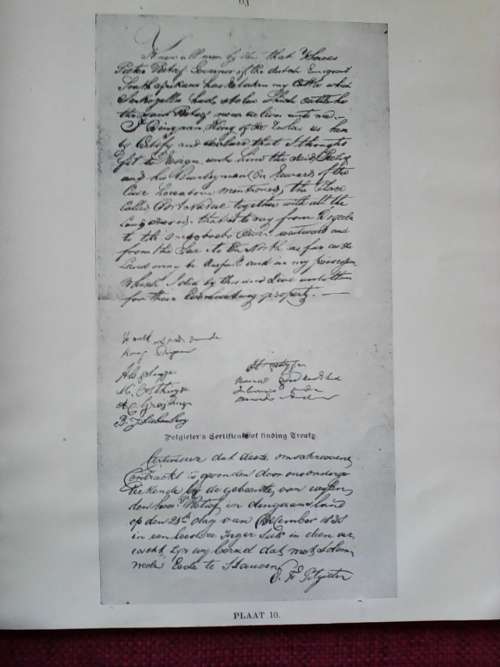 Know all men by this that Whereas
Pieter Retief Governor of the dutch Emigrants
South Afrikans has Retaken my Cattle which
Sinkonyella had stolen which Cattle he
the said Retief now deliver unto me
I Dingaan, King of the Zoolas as here
by Certify and declare that I thought
fit to Resign unto him the said Retief
and his Countrymen (on Reward of the
Case hereabove mentioned) the Place
Called Port Natal together with all the
Land annexed that is to say from Togela
to the Omsoboebo River westward and
from the Sea to the North as far as the
Land may be Usefull and in my possession
Which I did by this and Give unto them
for their Everlasting property. —
King
M Oosthuyzen
A C Greyling
B J Liebenberg
Potgieter's Certificate of finding Treaty
Certificeere dat deeze
Contract is gevonden door ons onderge
tekende by de gebeentes van wylen
den heer P Retief in dingaansland
op den 21st dag van Desember 1838
in een leedere Jager Sak
wy bereid dat met Solem
neele Eede te Staaven
E. F. Potgieter
PLAAT 10.